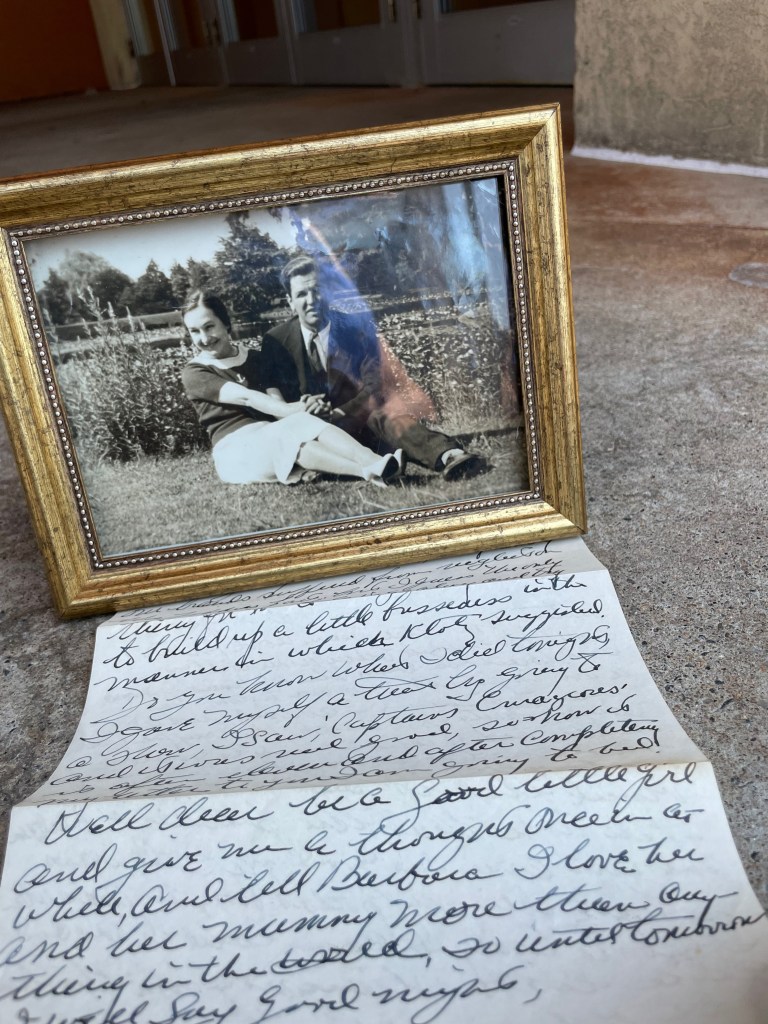 suffered from neglected
thing
to build up a little bussedess in the
manner in which Klotz suggested.
Do you know what I did tonight,
I gave myself a treat by going to
a show, I saw, 'Captains Courageous,'
and it was real good, so now it is
after eleven and after completing
letter to you I am going to bed!
Well dear be a good little girl
and give me a thought once in a
while, and tell Barbara I love her
and her mummy more than any-
thing in the world, so until tomorrow
I will say Good night,